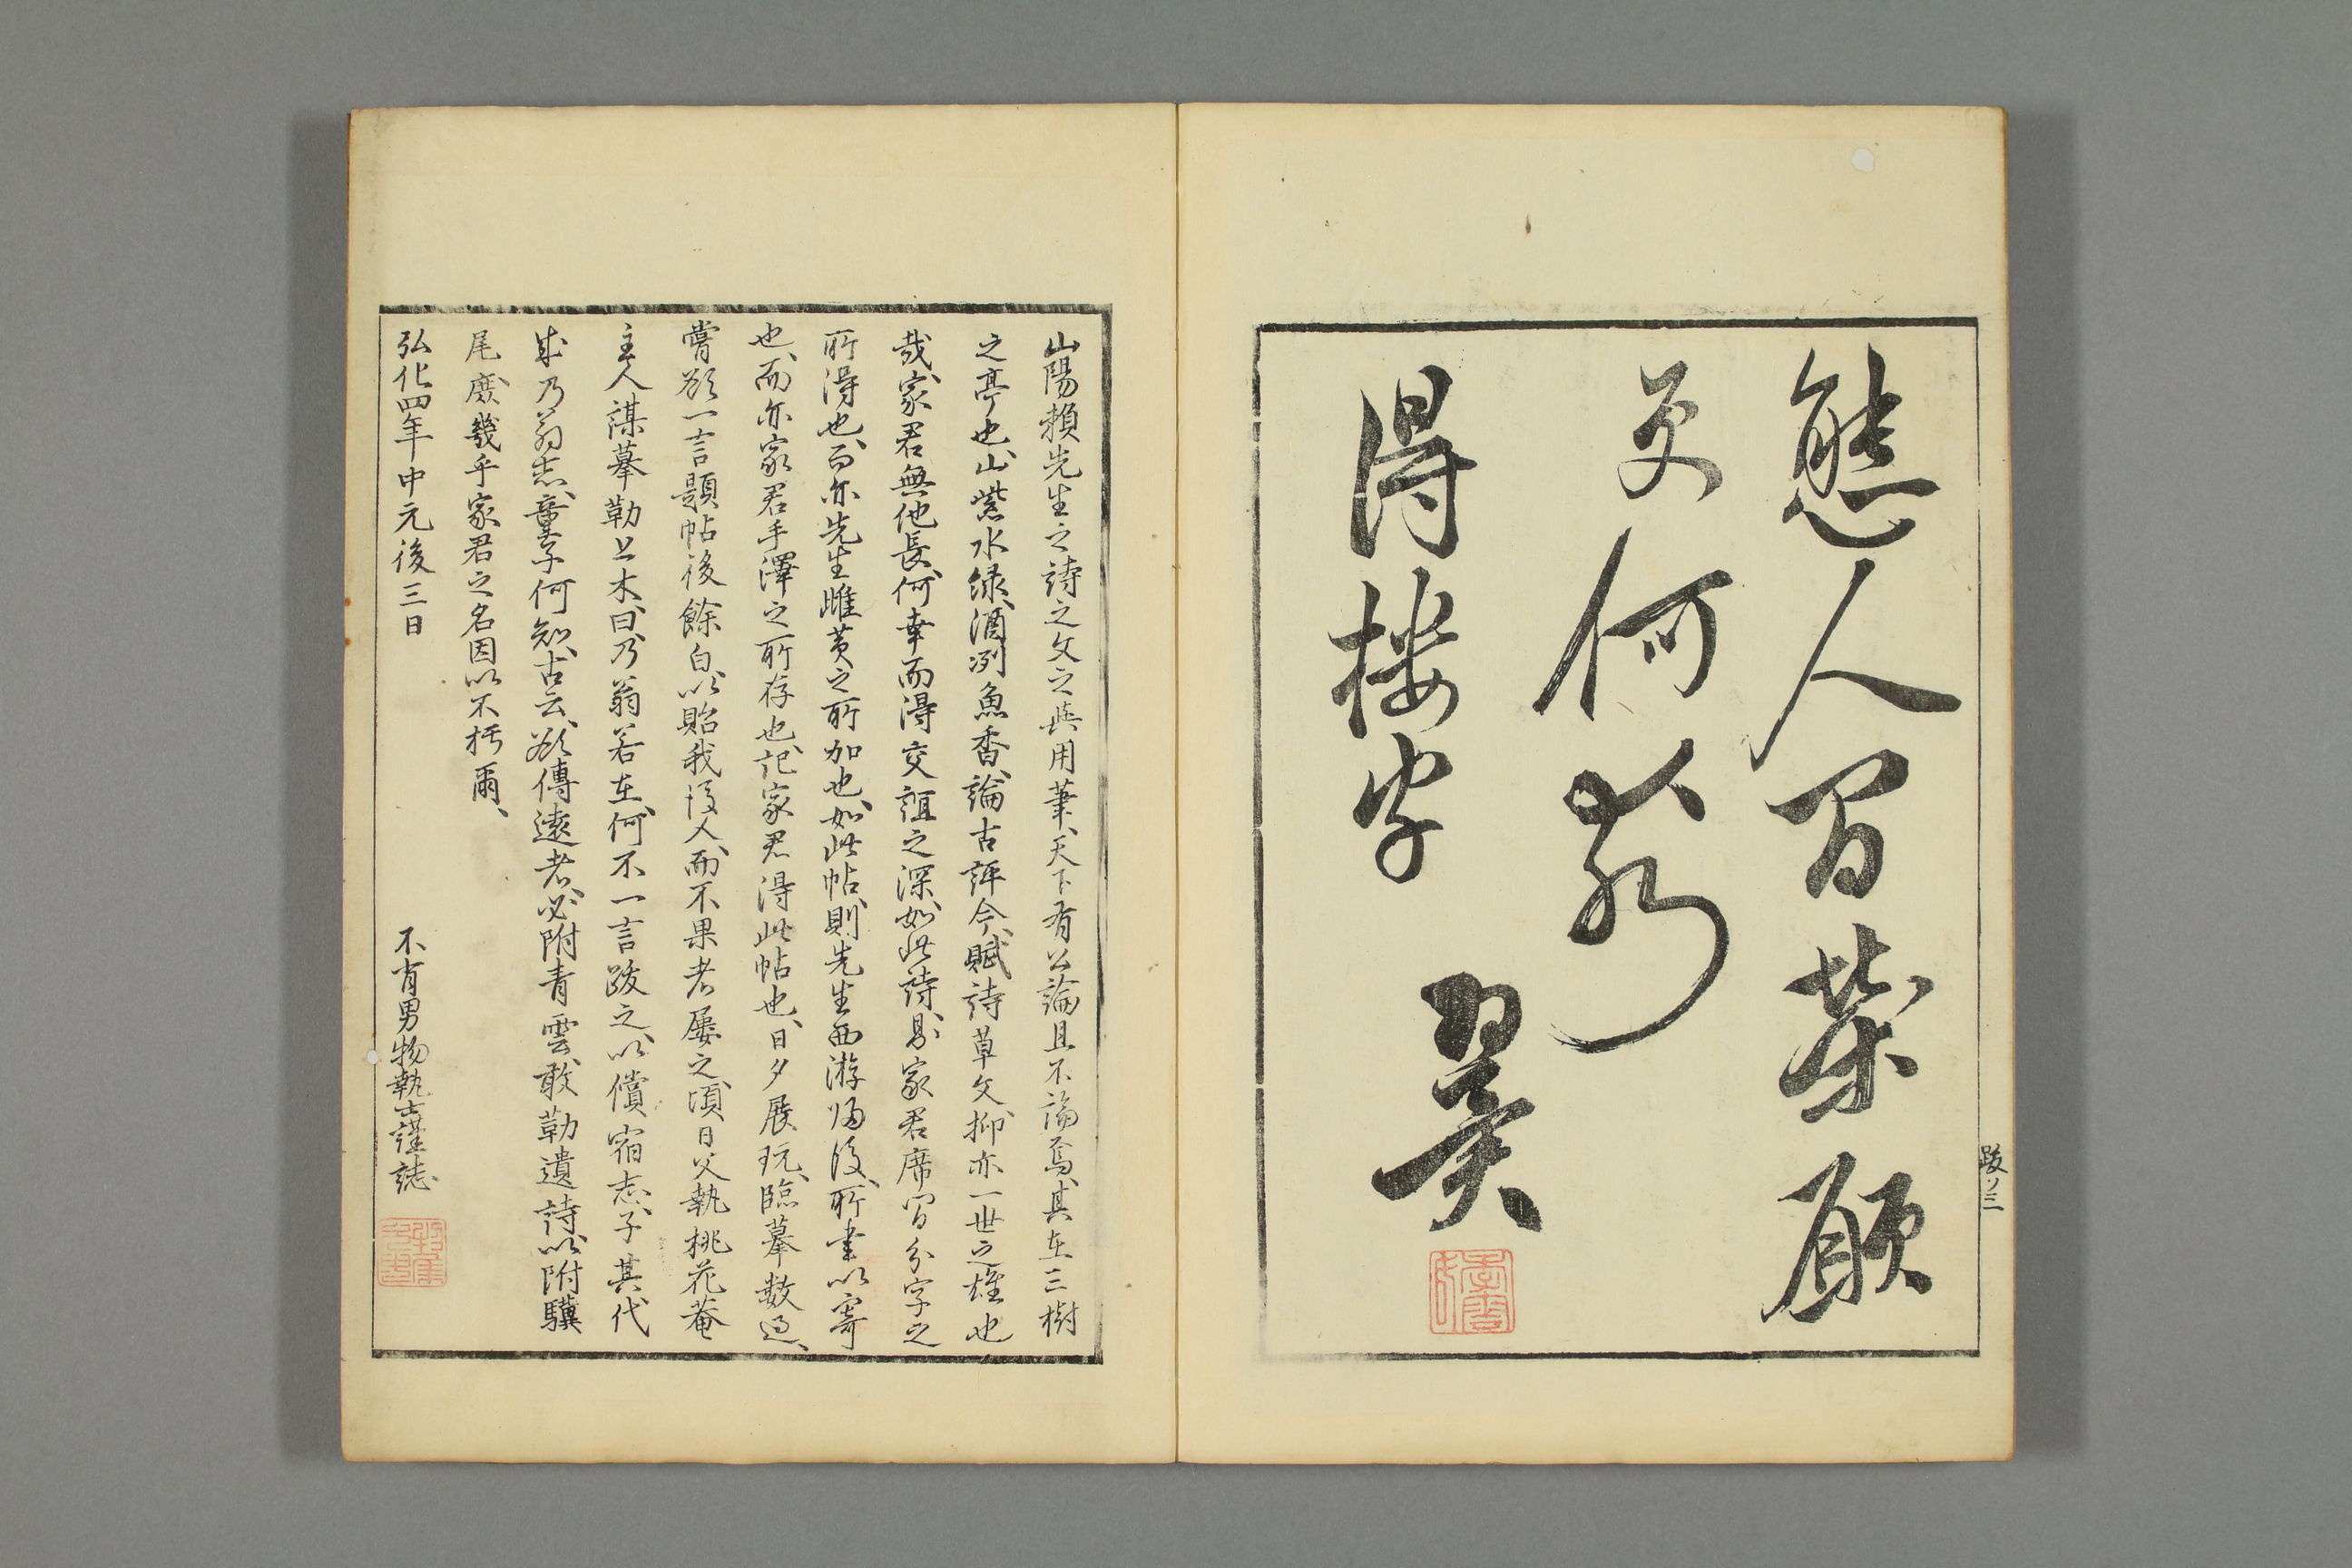 態人間榮願
更何以
得樓字
翼
跋ノ三
山陽賴先生之詩之文之與用筆天下有公論且不論焉其在三樹
之亭也山紫水緑酒冽魚香論古評今賦詩草文抑亦一世之雄也
哉家君無他長何幸而得交誼之深如此詩則家君席間分字之
所得也而亦先生雌黄之所加也如此帖則先生西游帰後所書以寄
也而亦家君手澤之所存也記家君得此帖也日夕展玩臨摹数過
嘗欲一言題帖後餘白以貽我後人而不果者屡之頃日父執桃花菴
主人謀摹勒上木曰乃翁若在何不一言跋之以償宿志子其代
成乃翁志童子何知古云欲傳遠者必附青雲敢勒遺詩以附驥
尾庶幾乎家君之名因以不朽爾
弘化四年中元後三日
不肖男物執謹誌